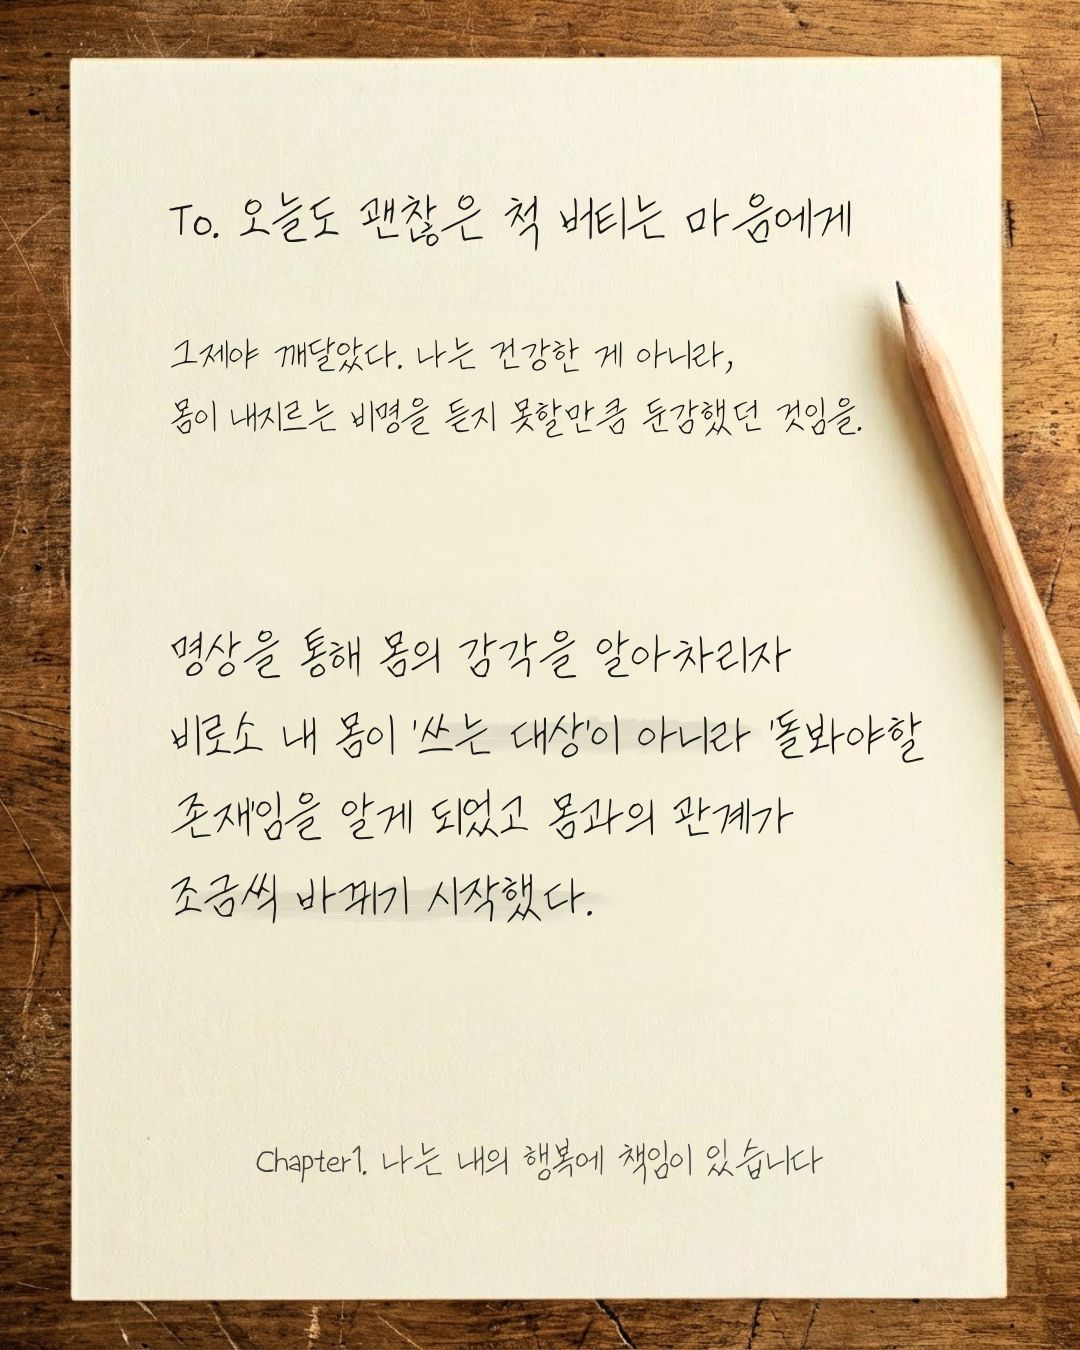 To. 오늘도 괜찮은 척 버티는 마음에게
그제야 깨달았다. 나는 건강한 게 아니라,
몸이 내지르는 비명을 듣지 못할만큼 둔감했던 것임을.
명상을 통해 몸의 감각을 알아차리자
비로소 내 몸이 '쓰는 대상'이 아니라 '돌봐야할
존재'임을 알게 되었고 몸과의 관계가
조금씩 바뀌기 시작했다.
Chapter1. 나는 내의 행복에 책임이 있습니다